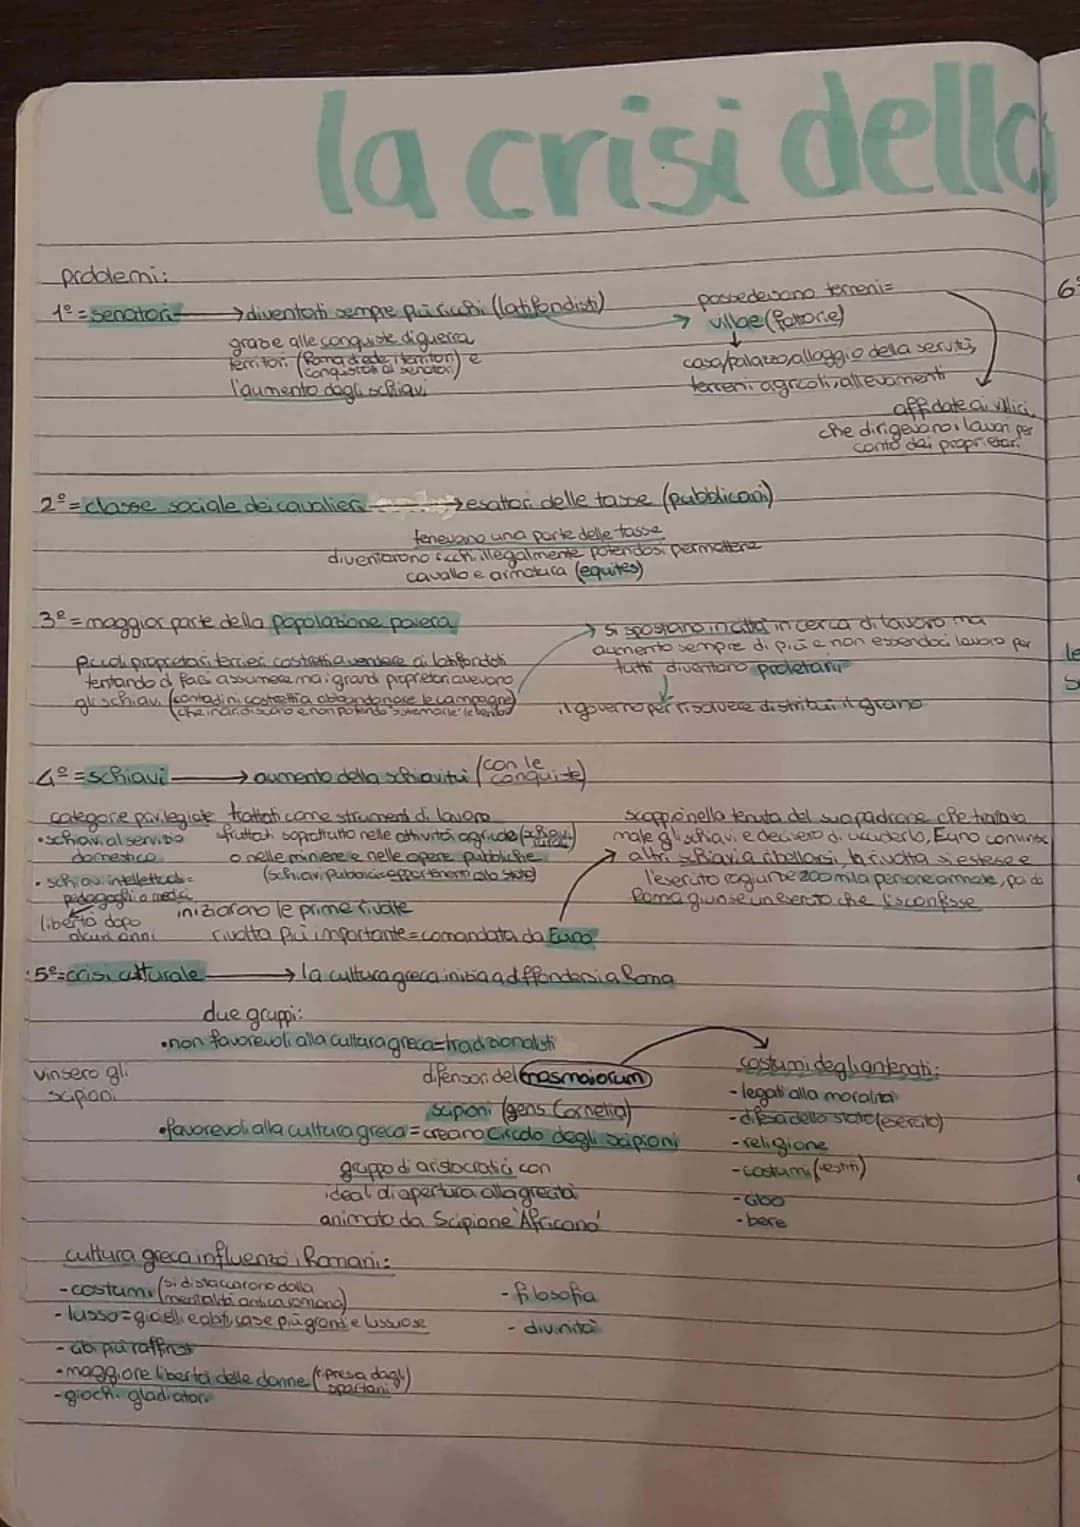 la crisi della
problemi:
1º = senatori → diventati sempre più ricchi (latifondisti)
grazie alle conquiste di guerra
territori (Roma diede i territori conquistati ai senatori) e
l'aumento degli schiavi
possedevano terreni =
villae (fattorie)
casa/palazzo, alloggio della servitù,
terreni agricoli, allevamenti
affidate ai villici
che dirigevano i lavori per
conto dei proprietari
2º = classe sociale dei cavalieri → esattori delle tasse (pubblicani)
tenevano una parte delle tasse
diventarono ricchi illegalmente potendosi permettere
cavallo e armatura (equites)
3º = maggior parte della popolazione povera
Piccoli proprietari terrieri costretti a vendere ai latifondisti
tentando di farsi assumere ma i grandi proprietari avevano
gli schiavi (contadini costretti a abbandonare le campagne
che inaridiscono e non potendo sistemarle le
si spostano in città in cerca di lavoro ma
aumento sempre di più e non essendoci lavoro per
tutti diventano proletarii
il governo per risolvere distribuì il grano
4º = schiavi → aumento della schiavitù (con le conquiste)
categorie privilegiate
• schiavi al servizio
domestico
• schiavi intellettuali =
pedagoghi o medici
libertà dopo
alcuni anni
trattati come strumenti di lavoro
sfruttati soprattutto nelle attività agricole (schiavi rurali)
o nelle miniere e nelle opere pubbliche
(schiavi pubblici = appartenenti allo stato)
iniziarono le prime rivolte
rivolta più importante = comandata da Euno
scoppiò nella tenuta del suo padrone che trattava
male gli schiavi e decisero di ucciderlo, Euno convinse
altri schiavi a ribellarsi, la rivolta si estese e
l'esercito raggiunse 200 mila persone armate, poi da
Roma giunse un esercito che li sconfisse
5º = crisi culturale → la cultura greca inizia a diffondersi a Roma
due gruppi:
• non favorevoli alla cultura greca = tradizionalisti
difensori del mos maiorum
vinsero gli
scipioni
scipioni (gens Cornelia)
• favorevoli alla cultura greca = creano Circolo degli scipioni
gruppo di aristocratici con
ideali di apertura alla grecità
animato da Scipione 'Africano'
costumi degli antenati:
- legati alla moralità
- difesa dello stato (esercito)
- religione
- costumi (vestiti)
- cibo
- bere
cultura greca influenzò i Romani:
- costumi (si distaccarono dalla mentalità antica romana)
- lusso = gioielli e abiti, case più grandi e lussuose
- cibi più raffinati
- maggiore libertà delle donne (ripresa dagli spartani)
- giochi gladiatori
- filosofia
- divinità
6º
le